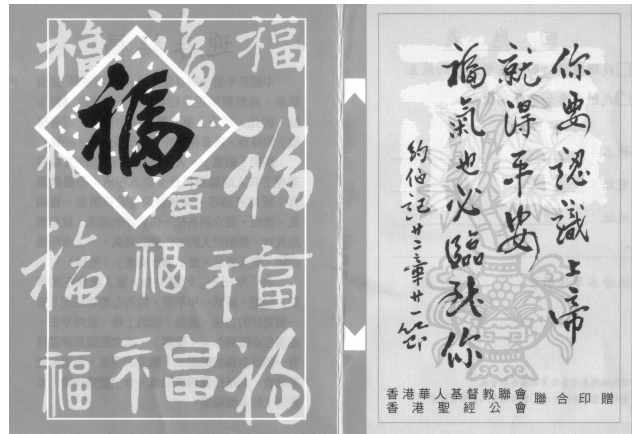 福 福 福
福
福 福 福
福 福 福
福 福 福
你要認識上帝
就得平安
福氣也必臨到你
約伯記廿二章廿一節
香港華人基督教聯會
香港聖經公會
聯合印贈